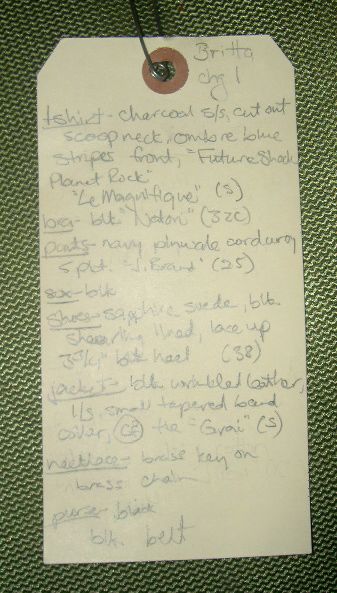 Britta
chg 1
tshirt - charcoal s/s, cut out
scoop neck, ombre blue
stripes front, "Future Shock
Planet Rock"
"Le Magnifique" (S)
bra - blk "Natori" (32C)
pants - navy pinwale corduroy
5 pkt. "J. Brand" (25)
sox - blk
shoes - sapphire suede, blk.
shearling lined, lace up
3 3/4" blk heel (38)
jacket - blk wrinkled leather,
l/s, small tapered band
collar, the "Grai" (S)
necklace - brass key on
brass chain
purse - black
blk. belt